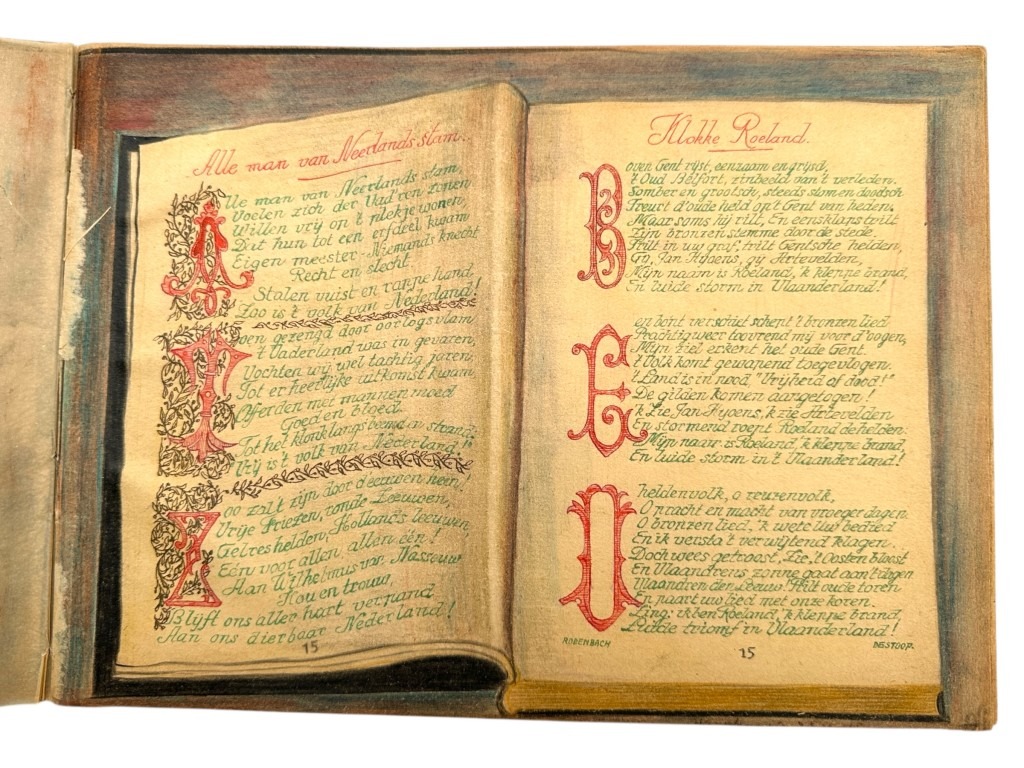 Alle man van Neerlands stam.
Alle man van Neerlands stam,
Voelen zich der Vad'ren zonen
Willen vry op 't plekje wonen,
Dat hun tot een erfdeel kwam
Eigen meester - Niemands knecht
Recht en slecht.
Stalen vuist en ranje hand,
Zoo is 't volk van Nederland!
Toen gezengd door oorlogsvlam
't Vaderland was in gevaren,
Vochten wy, wel tachtig jaren,
Tot er heerlijke uitkomst kwam.
Offerden met mannenmoed
Goed en bloed.
Tot het klonk langs
Vrij is 't volk van Nederland!"
Zoo zal't zijn door d'eeuwen heen!
Vrije Friezen, ronde Zeeuwen,
Gelres helden, Holland's leeuwen,
Eén voor allen, allen één!
Aan Wilhelmus van Nassouw
Hou en trouw,
Blijft ons aller hart verpand
Aan ons dierbaar Nederland!
15
Klokke Roeland.
Boven Gent rijst, eenzaam en grijsd,
't Oud Belfort, zinbeeld van 't verleden.
Somber en grootsch, steeds stom en doodsch
Treurt d'oude held op 't Gent van heden,
Maar soms hij rilt, En eensklaps trilt
Zijn bronzen stemme door de stede.
Trilt in uw graf, trilt Gentsche helden,
Gy, Jan Hyoens, gy Artevelden,
Mijn naam is Roeland, 'k kleppe brand,
En luide storm in Vlaanderland!
Een bont verschiet schept 't bronzen lied
Prachtig weer toovrend my voor d'oogen,
Mijn ziel erkent het oude Gent.
't Volk komt gewapend toegevlogen.
't Land is in nood, "Vrijheid of dood!"
De gilden komen aangetogen!
'k Zie Jan Hyoens, 'k zie Artevelden
En stormend roept Roeland de helden
Mijn naam is Roeland, 'k kleppe brand,
En luide storm in 't Vlaanderland!
O heldenvolk, o reuzenvolk,
O pracht en macht van vroeger dagen
O bronzen lied, 'k wete uw bedied
En ik versta 't verwijtend klagen.
Doch wees getroost, Zie, 't Oosten bloost
En Vlaandrens zonne gaat aan't dagen
Vlaanderen den Leeuw. Tril oude toren
En paart uw lied met onze koren.
Zing: ik ben Roeland, 'k kleppe brand,
Luide triomf in Vlaanderland!
RODENBACH
DESTOOP.
15